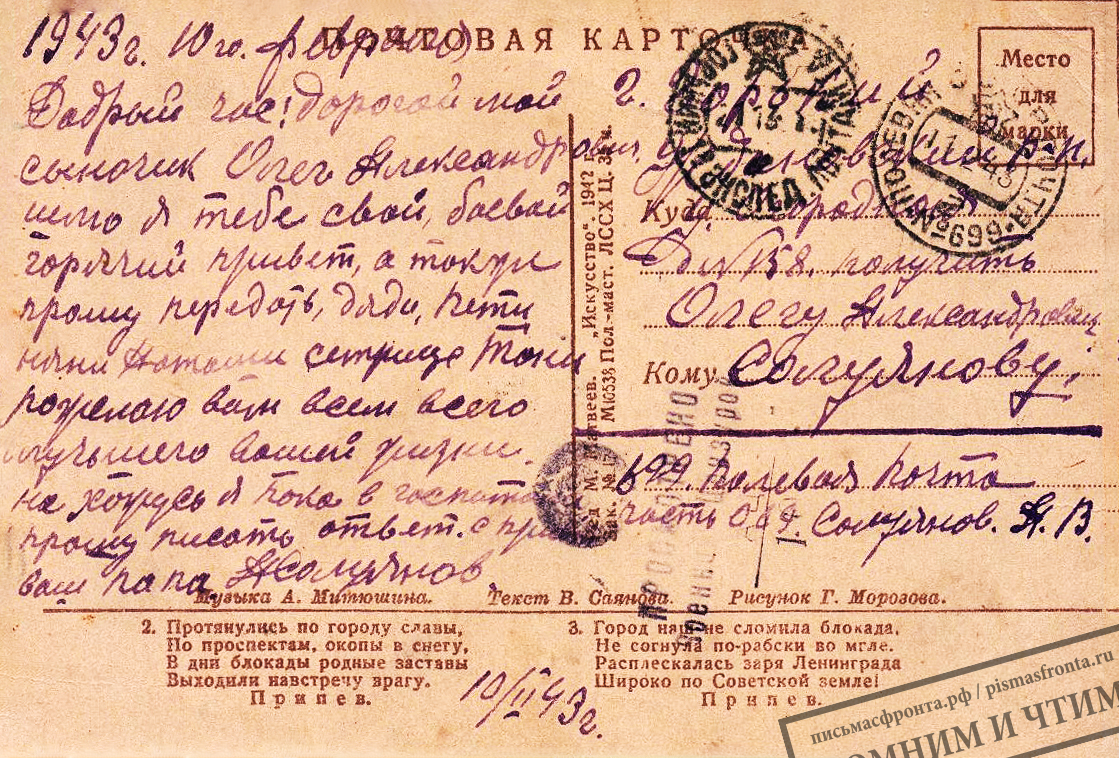 1943г. 10го. февраля
ПОЧТОВАЯ КАРТОЧКА
Добрый час! дорогой мой
сыночик Олег Александрович,
шлю я тебе свой, боевой
горячий привет, а также
прошу передать, дяди, Пети
няни Наташи сетрице Тони
пожелаю вам всем всего
лучшего вашей жизни.
на хожусь я пока в госпита
прошу писать ответ. с при
ваш папа АСолуянов
Место
для
марки
г.
р-н.
Куда
Д. №158. получить
Олегу Александровичу
Кому Солуянову.
699 полевая почта
часть 069. Солуянов. А. В.
"Искусство". 1942 г.
М10538 Пол.-маст. ЛССХ Ц.
ПРОСМОТРЕНО
Военной Цензурой
ПОЛЕВАЯ ПОЧТА №699
11 2 43
Музыка А. Митюшина. Текст В. Саянова. Рисунок Г. Морозова.
2. Протянулись по городу славы,
По проспектам, окопы в снегу,
В дни блокады родные заставы
Выходили навстречу врагу.
Припев.
10/II 43г.
3. Город наш не сломила блокада,
Не согнула по-рабски во мгле.
Расплескалась заря Ленинграда
Широко по Советской земле!
Припев.
письмасфронта.рф / pismasfronta.ru
ПОМНИМ И ЧТИМ